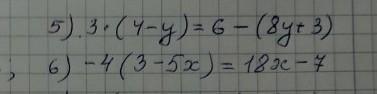 5) 3·(4-y) = 6 - (8y+3)
; 6) -4(3-5x) = 18x-7